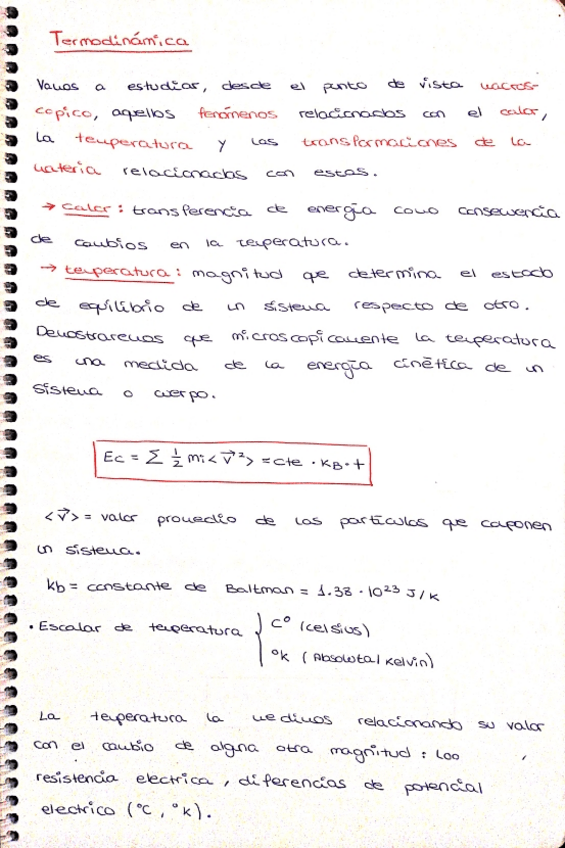 Termodinámica
Vamos a estudiar, desde el punto de vista macros-
copico, aquellos fenómenos relacionados con el calor,
la temperatura y las transformaciones de la
materia relacionados con estas.
→ Calor: transferencia de energía como consecuencia
de cambios en la temperatura.
→ temperatura: magnitud que determina el estado
de equilibrio de un sistema respecto de otro.
Demostraremos que microscopicamente la temperatura
es una medida de la energía cinética de un
sistema o cuerpo.
Ec = Σ 1/2 mi <v⃗²> = cte · KB · t
<v⃗> = valor promedio de las partículas que componen
un sistema.
kb = constante de Baltman = 1.38 · 10²³ J/K
• Escalar de temperatura { Cº (celsius)
ºk (Absoluta/Kelvin)
La temperatura la medimos relacionando su valor
con el cambio de alguna otra magnitud:
resistencia electrica, diferencias de potencial
electrico (ºC, ºk).